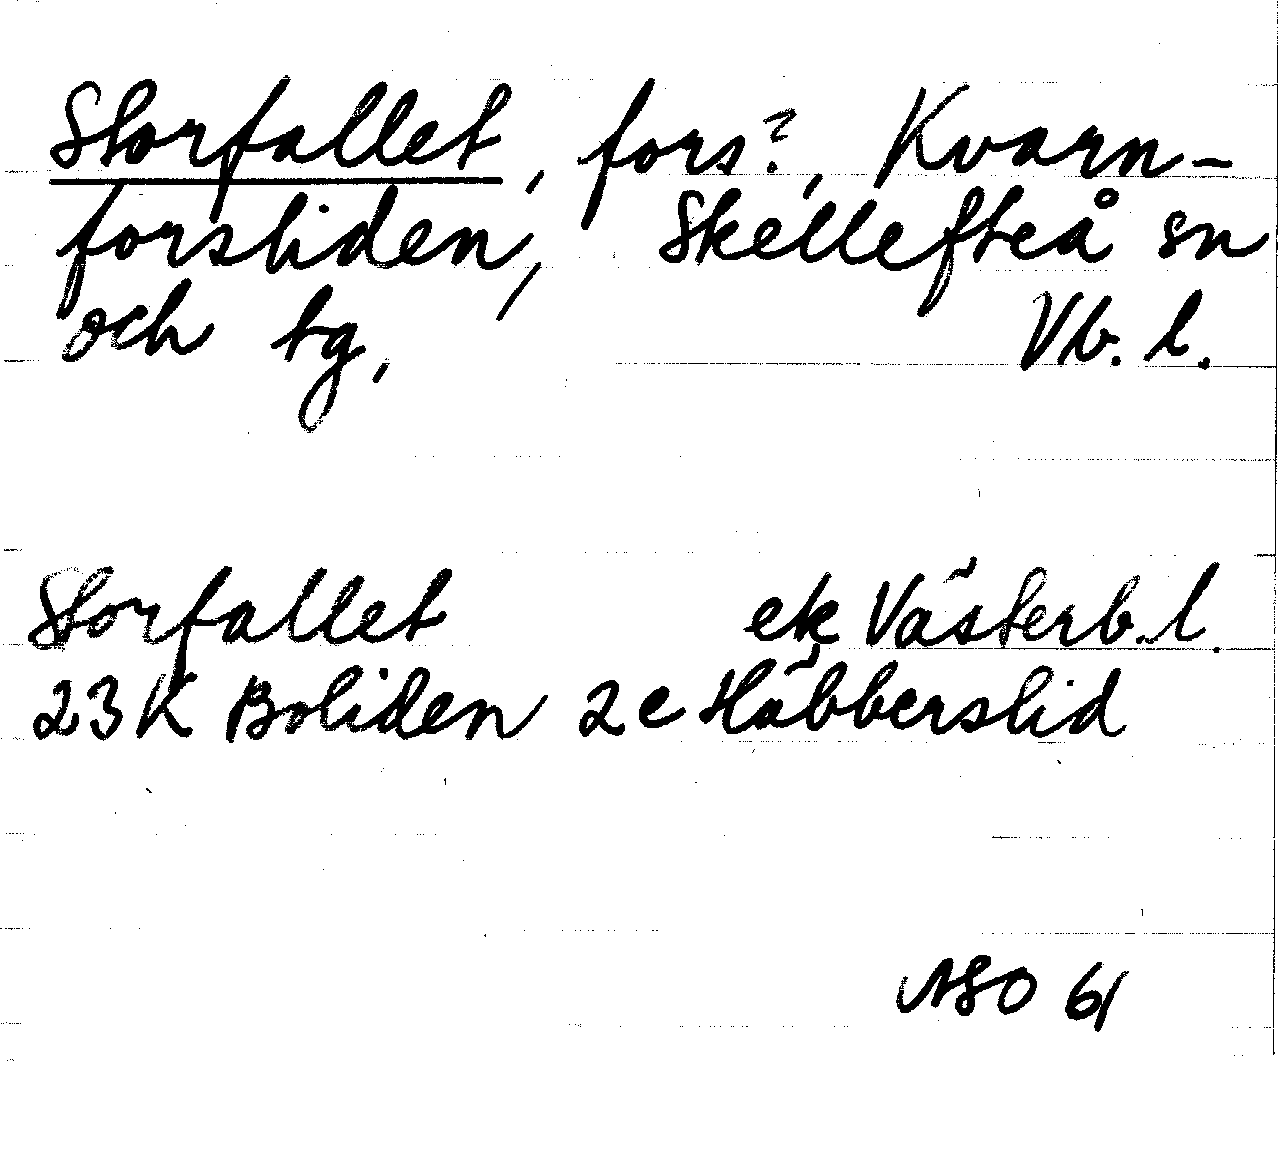 Storfallet, fors?, Kvarn-
forsliden, Skellefteå sn
och tg, Vb. l.
Storfallet ek Västerb. l.
23K Boliden 2e Häbberslid
ASO 61